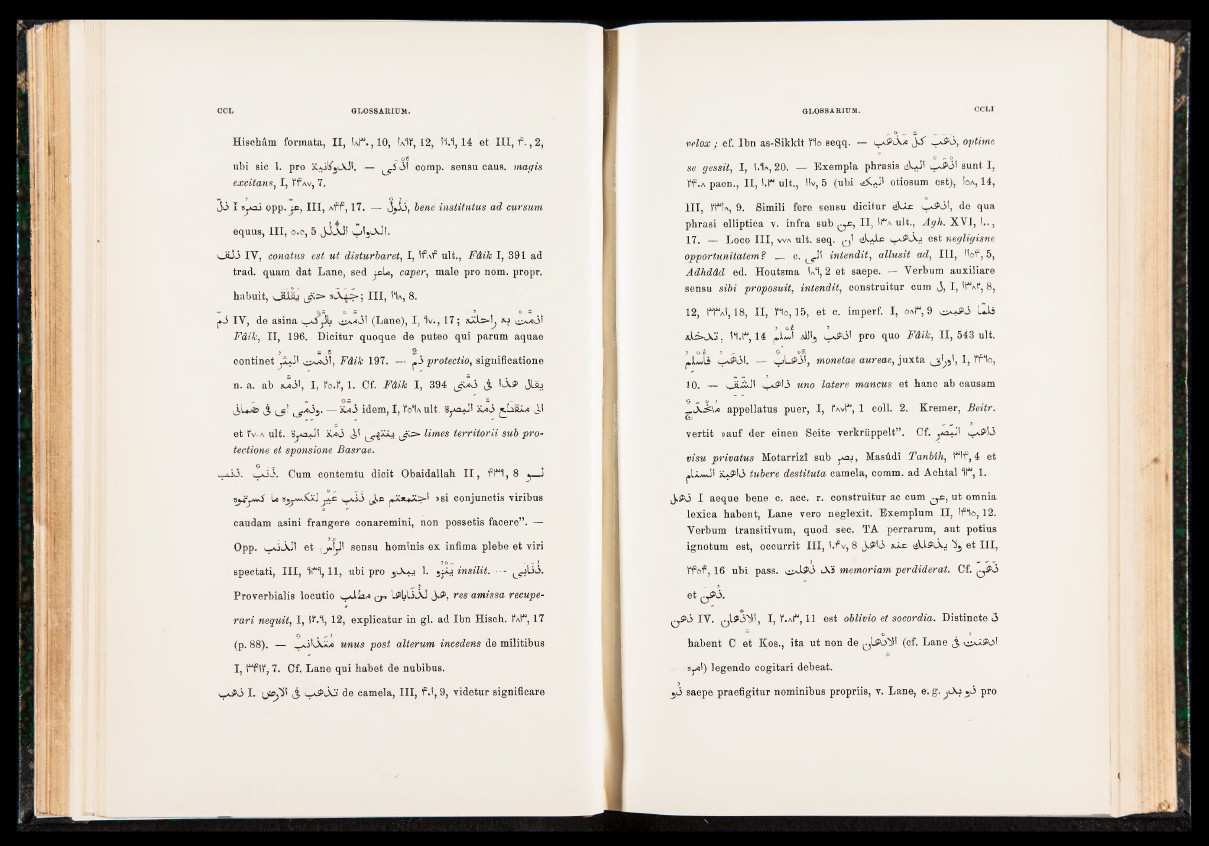 CCL GLOSSARIUM.
Hischâm formata, II, ١٨٣٠, 10, ١٨٩٢, 12, ١٩٠٩, 14 et III, ٤٠, 2,
ubi sic l. pro — أَذْكَى comp. sensu caus. magis
excitans, I, ٢٤٨٧, 7.
ذلّ I opp. عزّ, III, ٨٤٤, 17. — ذَلُول, bene institutus ad cursum
equus, III, ٥٠٥, 5
ذلف IV, conatus est ut disturbaret, I, ult., Fâik I, 391 ad
trad. quam dat Lane, sed ماعز, caper, male pro nom. propr.
habuit, جَهْدَه حتّى يَقْلَق; III, ١٩٨, 8.
ذمّ IV, de asina أذمّت بالركب (Lane), I, ٩٧٠, 17;
Fâik, II, 196. Dicitur quoque de puteo qui parum aquae
continet أذمّت البئر, Fâik 197. — ذمّ protectio, significatione
n. a. ab I, ٢٥٠٢, 1. Cf. Fâik I, 394 يقال هذا فى ذمّتى
— ذمّة idem, I, ٢٥٦٨ ult. الى مقطع ذمّة البصرة
et ٢٧٠٨ ult. حتى ينتهى الى ذمّة البصرة limes territorii sub pro-
tectione et sponsione Basrae.
ذنب. ذَنَب. Cum contemtu dicit Obaidallah II, ٤٣٩, 8 لو
اجتمعتم على ذنب عير لتكسروه ما كسرتموه »si conjunctis viribus
caudam asini frangere conaremini, non possetis facere”. —
Opp. الذَنَب et الرأس sensu hominis ex infima plebe et viri
spectati, III, 11, ubi pro يدو l. يَنْزُو insilit. — ذُنَابَى.
Proverbialis locutio res amissa recupe-
rari nequit, I, ١٢٠٩, 12, explicatur in gl. ad Ibn Hisch. ٢٨٣, 17
(p. 88). — مُتَذَانِب unus post alterum incedens de militibus
I, 7. Cf. Lane qui habet de nubibus.
ذهب I. تذهب فى الارض de camela, III, ٤٠١, 9, videtur significare
GLOSSARIUM. CCLI
velox; cf. Ibn as-Sikkît ٢٩٥ seqq. — ذَهَبَ كلَّ مَذْهَب, optime
se gessit, I, ١٠٦٨, 20. — Exempla phrasis اذهب اليك sunt I,
٢٤٠٨ paen., II, ١٠٣ ult., ١١٧, 5 (ubi اليك otiosum est), ١٥٨, 14,
III, ٢٣١٨, 9. Simili fere sensu dicitur اذهب عنك, de qua
phrasi elliptica v. infra sub عن, II, ١٣٨ ult., Agh. XVI, ١٠٠,
17. — Loco III, ٧٧٨ ult. seq. أن يذهب عليك est negligisne
opportunitatem? — c. الى intendit, allusit ad, III, ١١٥٤, 5,
Adhdâd ed. Houtsma ١٨٩, 2 et saepe. — Verbum auxiliare
sensu sibi proposuit, intendit, construitur cum ل, I, ١٣٨٢, 8,
12, ٣٣٨١, 18, II, ٢٩٥, 15, et c. imperf. I, ٥٨٣, 9 فلمّا ذهبت
تدخله, ١٩٠٣, 14 اذهب والله أسلم pro quo Fâik, II, 543 ult.
اذهب فأسلم. — أذهاب, monetae aureae, juxta اوراق, I, ٢٤٩٥,
10. — ذاهب الشقّ uno latere mancus et hanc ab causam
مُخْدَج appellatus puer, I, ٢٨٧٣, 1 coll. 2. Kremer, Beitr.
vertit »auf der einen Seite verkrüppelt”. Cf. ذاهب البصر
visu privatus Motarrizî sub بصر, Masûdî Tanbîh, ٣١٤, 4 et
ذاهبة السنام tubere destituta camela, comm. ad Achtal ٩٣, 1.
ذهل I aeque bene c. acc. r. construitur ac cum عن, ut omnia
lexica habent, Lane vero neglexit. Exemplum II, ١٤٩٥, 12.
Verbum transitivum, quod sec. TA perrarum, aut potius
ignotum est, occurrit III, ١٠٤٧, 8 ولا يذهلك عنه ذاهل et III,
٢٤٥٤, 16 ubi pass. قد ذهلت memoriam perdiderat. Cf. ذَهَنَ
et ذهن.
ذهن IV. الاذهان, I, ٢٠٨٣, 11 est oblivio et socordia. Distincte ذ
habent C et Kos., ita ut non de الادهان (cf. Lane ادهنت فى
امره) legendo cogitari debeat.
ذو saepe praefigitur nominibus propriis, v. Lane, e. g. ذو بدر pro